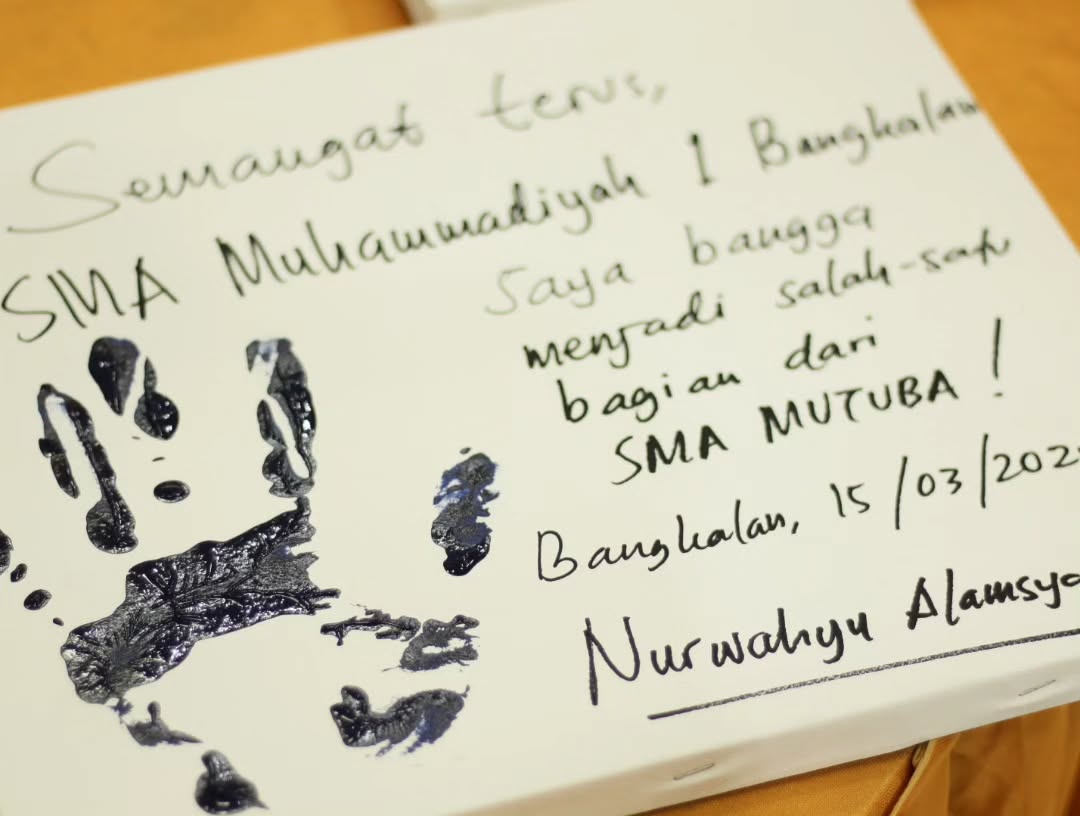 Semangat terus,
SMA Muhammadiyah 1 Bangkalan
Saya bangga
menjadi salah-satu
bagian dari
SMA MUTUBA !
Bangkalan, 15/03/202
Nurwahyu Alamsya